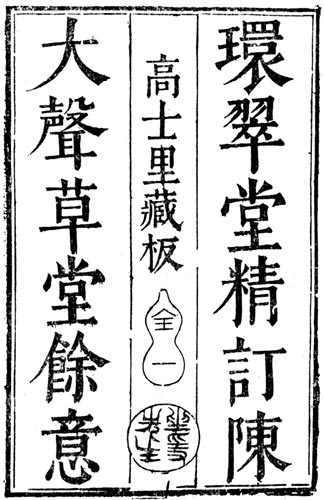 環翠堂精訂陳
高士里藏板
全一
坐隱先生
大聲草堂餘意